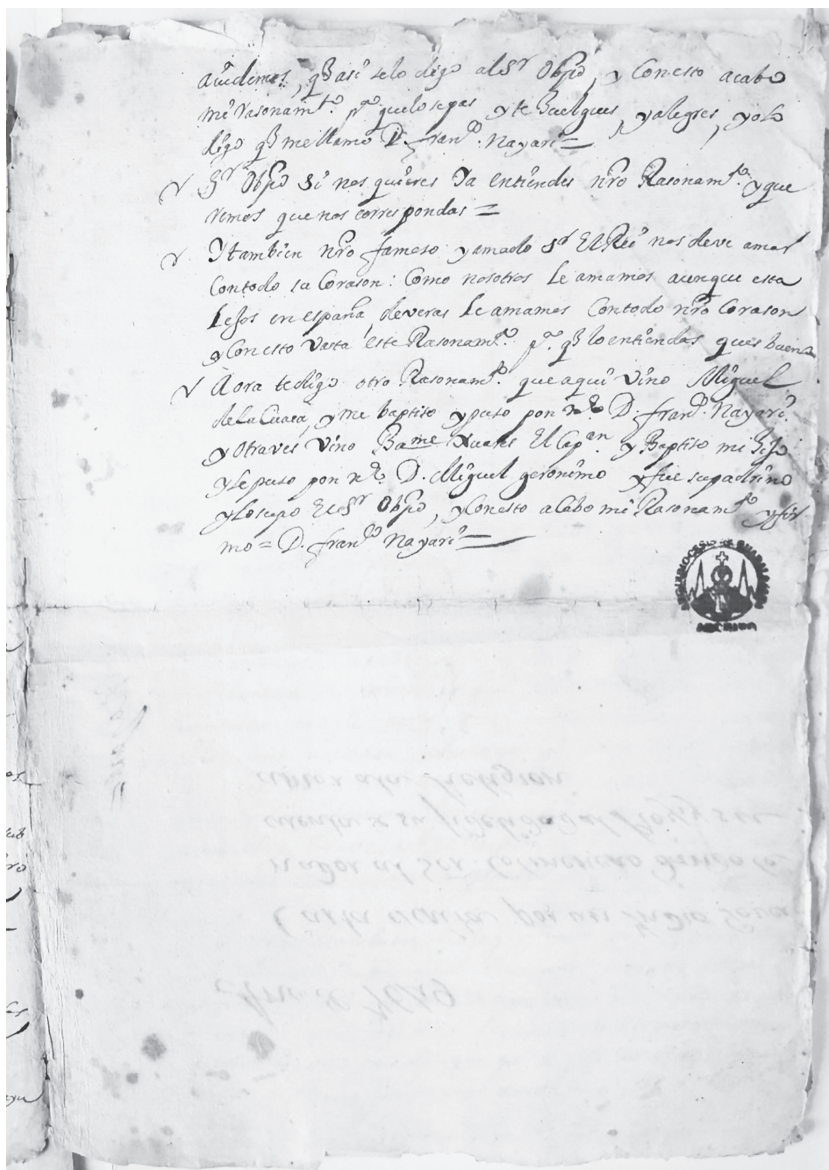 avedemos, q̃ asi selo digo al Sr Obpo, y Conesto acabo
mi rasonamto. pa. que losepas y te huelgues, yalegres, yolo
digo q̃ me llamo D. franco. Nayari =
Sr Obpo si nos quieres Ya entiendes nro Rasonamto. y que
remos que nos correspondas =
Y tambien nro famoso yamado Sr El Rei nos deve amar
Contodo su Corason: Como nosotros le amamos aunque esta
Lejos en españa, deveras le amamos Contodo nro Corason
y Conesto vasta este Rasonamto. pa. q̃ lo entiendas ques bueno
Aora tedigo otro Rasonamto. que aqui vino Miguel
de la Cueva, y me baptiso y puso por ne D. franco. Nayari
y Otraves vino Bame Xuares El Capan. y Baptiso mi hijo
y le puso por ne D. Miguel geronimo y fue supadrino
y Losupo El Sr Obpo, y Conesto acabo mi Rasonamto y fir
mo = D. franco Nayari =
Carta escrita por un Indio Gover
nador al Sor. Colmenero dandole
cuenta de su fidelidad al Rey y
Religion
Año de 1649